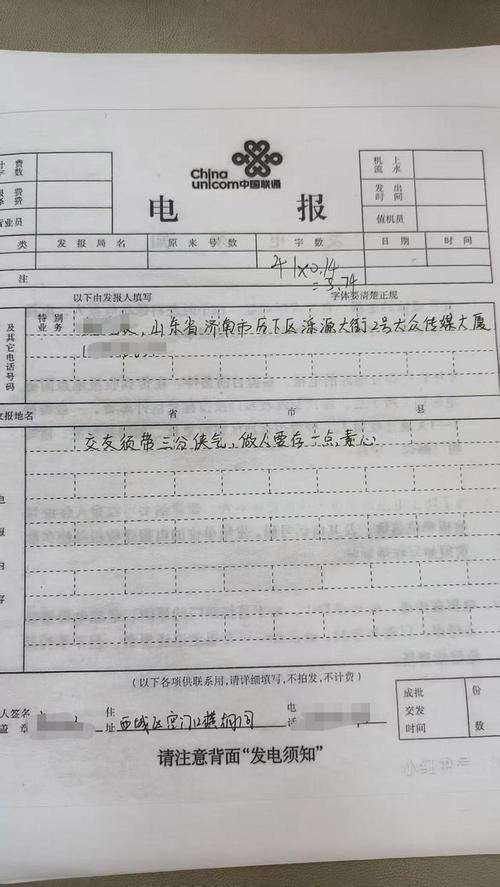 China
unicom中国联通
电 报
计费
字数
机上
流水
报费
译费
发出
时间
营业员
值机员
类 发报局名 原来号数 字数 日期 时间
注
41×0.14
=5.74
以下由发报人填写 字体要清楚正规
特别
业务
山东省济南市历下区泺源大街2号大众传媒大厦
及其它电话号码
收报地名 省 市 县
交友须带三分侠气,做人要存一点素心
电报内容
(以下各项供联系用,请详细填写,不拍发,不计费)
人签名
盖章
住
址
西城区宫门口横胡同
电
话
成批
交发
时间
份
数
请注意背面“发电须知”